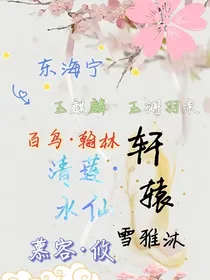 东海宁
玉麒麟·玉
百鸟·翰林
轩辕
清蓝·
水仙
雪雅沐
慕容·攸